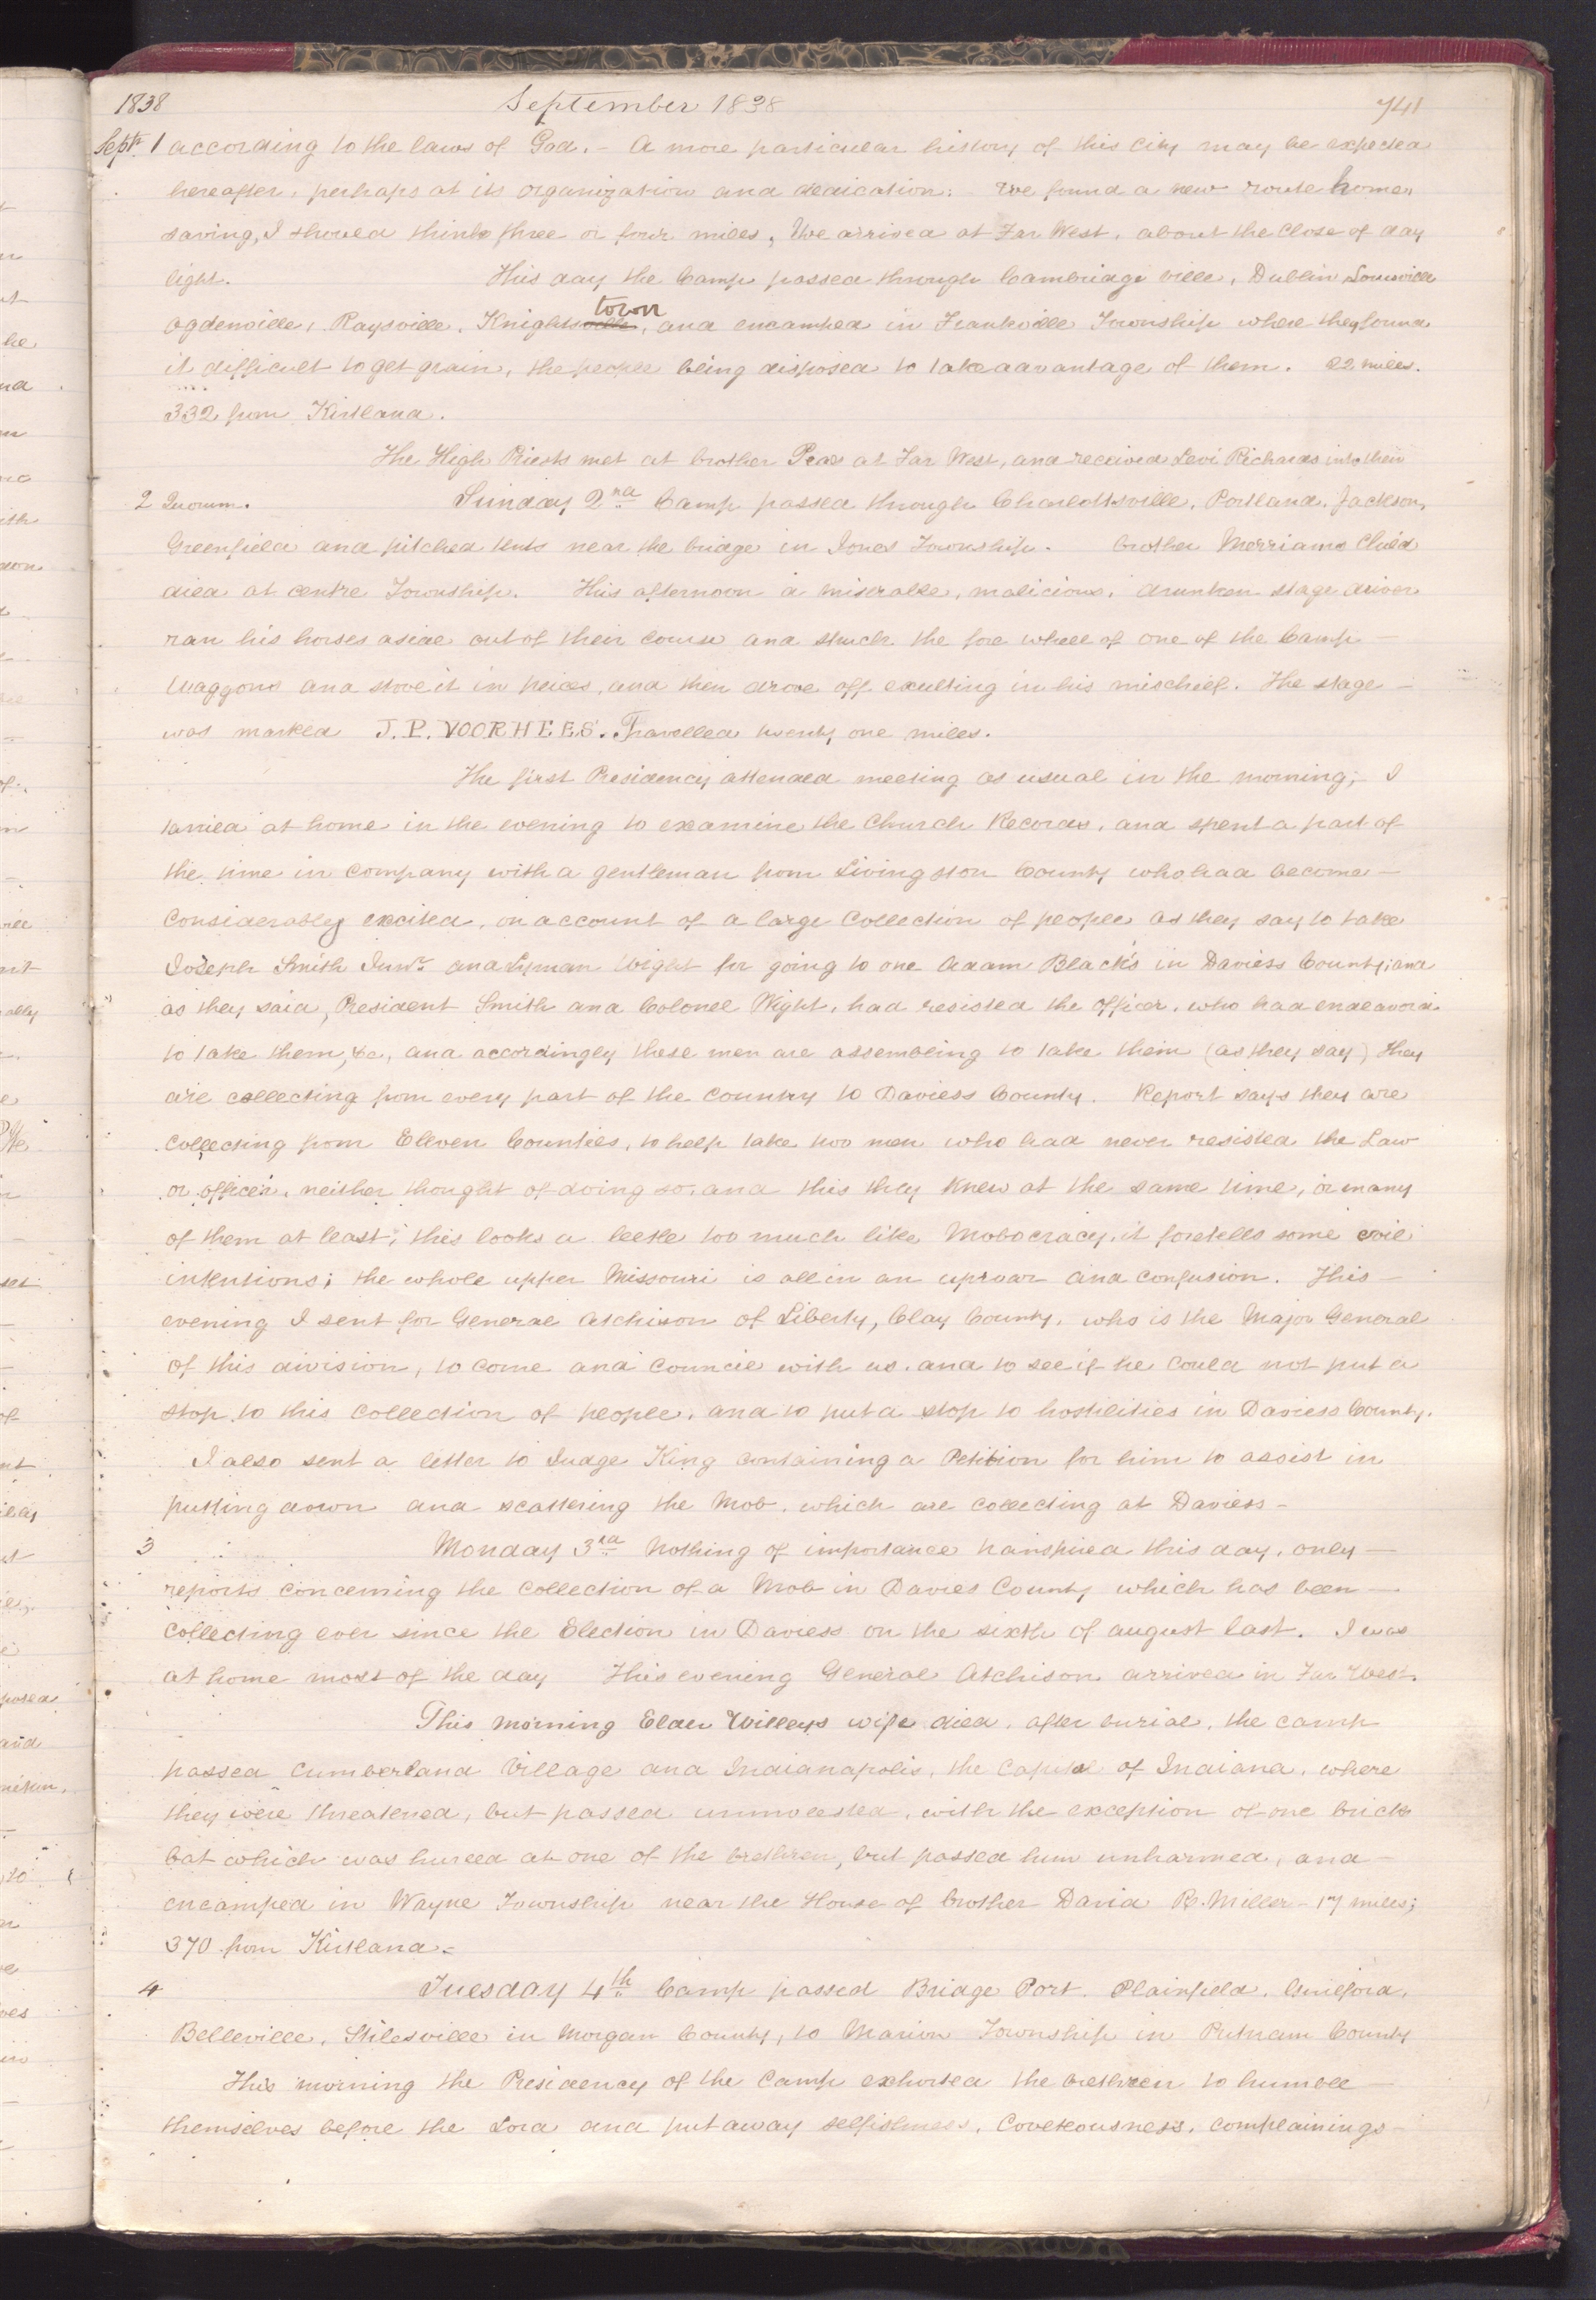 1838 September 1838 741
Sept. 1 according to the laws of God. – A more particular history of this city may be expected
hereafter, perhaps at its organization and dedication. We found a new route home,
saving, I should think three or four miles, We arrived at Far West, about the close of day
light. This day the Camp passed through Cambridge ville, Dublin Louisville
town
Ogdenville, Raysville, Knightsville, and encamped in Frankville Township where they found
it difficult to get grain, the people being disposed to take advantage of them. 22 miles.
332 from Kirtland.
The High Priests met at brother Pea's at Far West, and received Levi Richards into their
2 Quorum. Sunday 2nd Camp passed through Charlottsville, Portland, Jackson,
Greenfield and pitched tents near the bridge in Jones Township. brother Merriams Child
died at centre Township. This afternoon a miserable, malicious, drunken stage driver
ran his horses aside out of their course and struck the fore wheel of one of the Camp –
Waggons and stove it in peices, and then drove off exulting in his mischief. The stage –
was marked J. P. VOORHEES. Travelled twenty one miles.
The first Presidency attended meeting as usual in the morning; I
tarried at home in the evening to examine the Church Records, and spent a part of
the time in company with a gentleman from Livingston County who had become –
Considerably excited, on account of a large Collection of people as they say to take
Joseph Smith Junr. and Lyman Wight for going to one Adam Black's in Daviess County; and
as they said, President Smith and Colonel Wight, had resisted the officer, who had endeavord
to take them, &c, and accordingly these men are assembling to take them (as they say) they
are collecting from every part of the country to Daviess County. Report says they are
collecting from Eleven Counties, to help take two men who had never resisted the Law
or officer, neither thought of doing so, and this they knew at the same time, or many
of them at least; this looks a leetle too much like Mobocracy, it foretells some evil
intentions; the whole upper Missouri is all in an uproar and confusion. This –
evening I sent for General Atchison of Liberty, Clay County, who is the Major General
of this division, to come and Council with us, and to see if he could not put a
stop to this collection of people, and to put a stop to hostilities in Daviess County.
I also sent a letter to Judge King containing a Petition for him to assist in
putting down and scattering the Mob, which are collecting at Daviess –
3 Monday 3rd Nothing of importance transpired this day, only –
reports concerning the collection of a Mob in Davies County which has been –
collecting ever since the Election in Daviess on the sixth of august last. I was
at home most of the day This evening General Atchison arrived in Far West.
This morning Elder Willeys wife died, after burial, the camp
passed Cumberland Village and Indianapolis, the Capital of Indiana, where
they were threatened, but passed unmolested, with the exception of one brick
bat which was hurled at one of the brethren, but passed him unharmed, and –
encamped in Wayne Township near the House of brother David R. Miller – 17 miles;
370 from Kirtland –
4 Tuesday 4th Camp passed Bridge Port. Plainfield. Guilford,
Belleville, Stilesville in Morgan County, to Marion Township in Putnam County
This morning the Presidency of the Camp exhorted the brethren to humble –
themselves before the Lord and put away selfishness, Coveteousness, complainings –